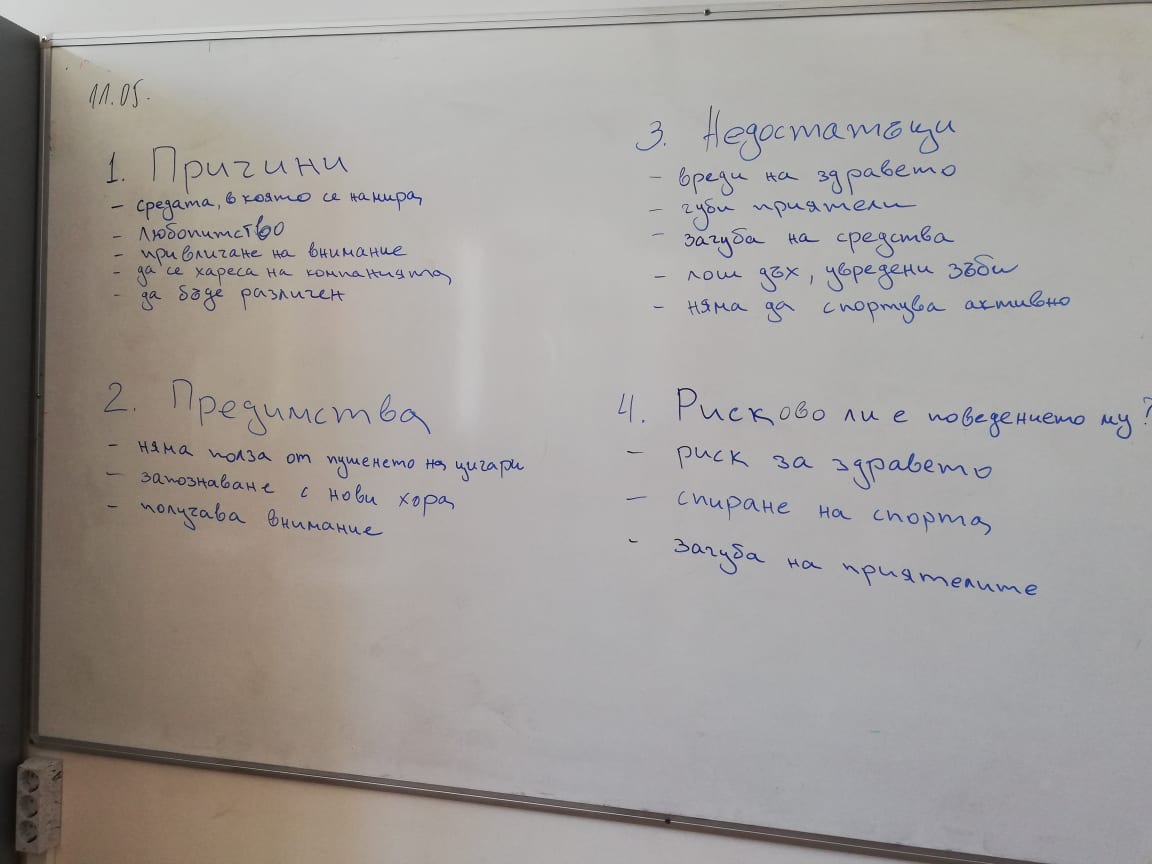 11.05.
1. Причини
- средата, в която се намира
- любопитство
- привличане на внимание
- да се хареса на компанията
- да бъде различен
2. Предимства
- няма полза от пушенето на цигари
- запознаване с нови хора
- получава внимание
3. Недостатъци
- вреди на здравето
- губи приятели
- загуба на средства
- лош дъх, увредени зъби
- няма да спортува активно
4. Рисково ли е поведението му?
- риск за здравето
- спиране на спорта
- загуба на приятелите